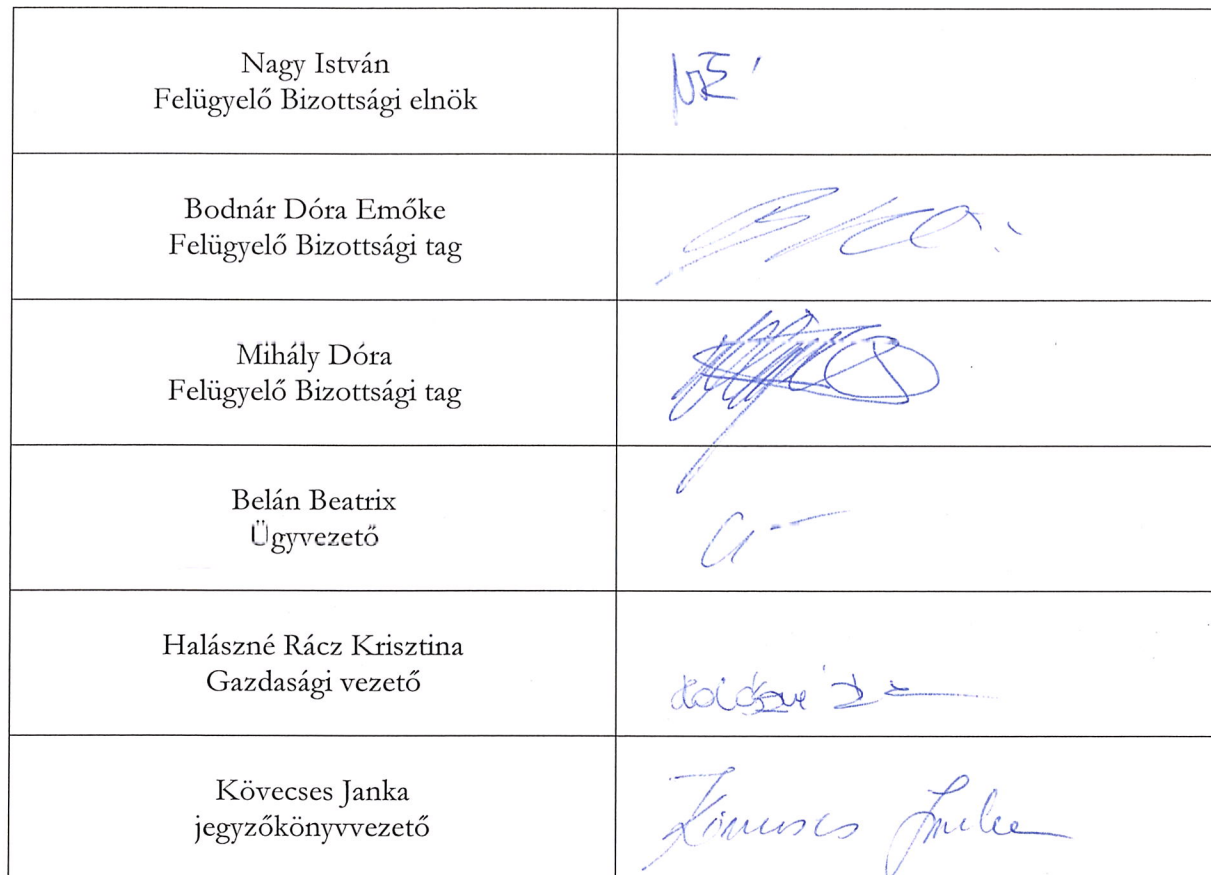 Nagy István
Felügyelő Bizottsági elnök
Bodnár Dóra Emőke
Felügyelő Bizottsági tag
Mihály Dóra
Felügyelő Bizottsági tag
Belán Beatrix
Ügyvezető
Halászné Rácz Krisztina
Gazdasági vezető
Kövecses Janka
jegyzőkönyvvezető